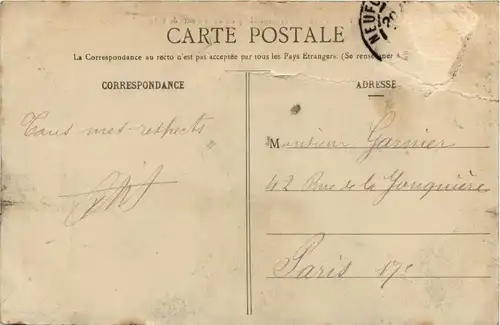 CARTE POSTALE
La Correspondance au recto n'est pas acceptée par tous les Pays Etrangers. (Se renseigner à
NEUFC
20
CORRESPONDANCE
ADRESSE
Tous mes respects
Monsieur Garnier
42 Rue de la Jonquière
Paris 17e